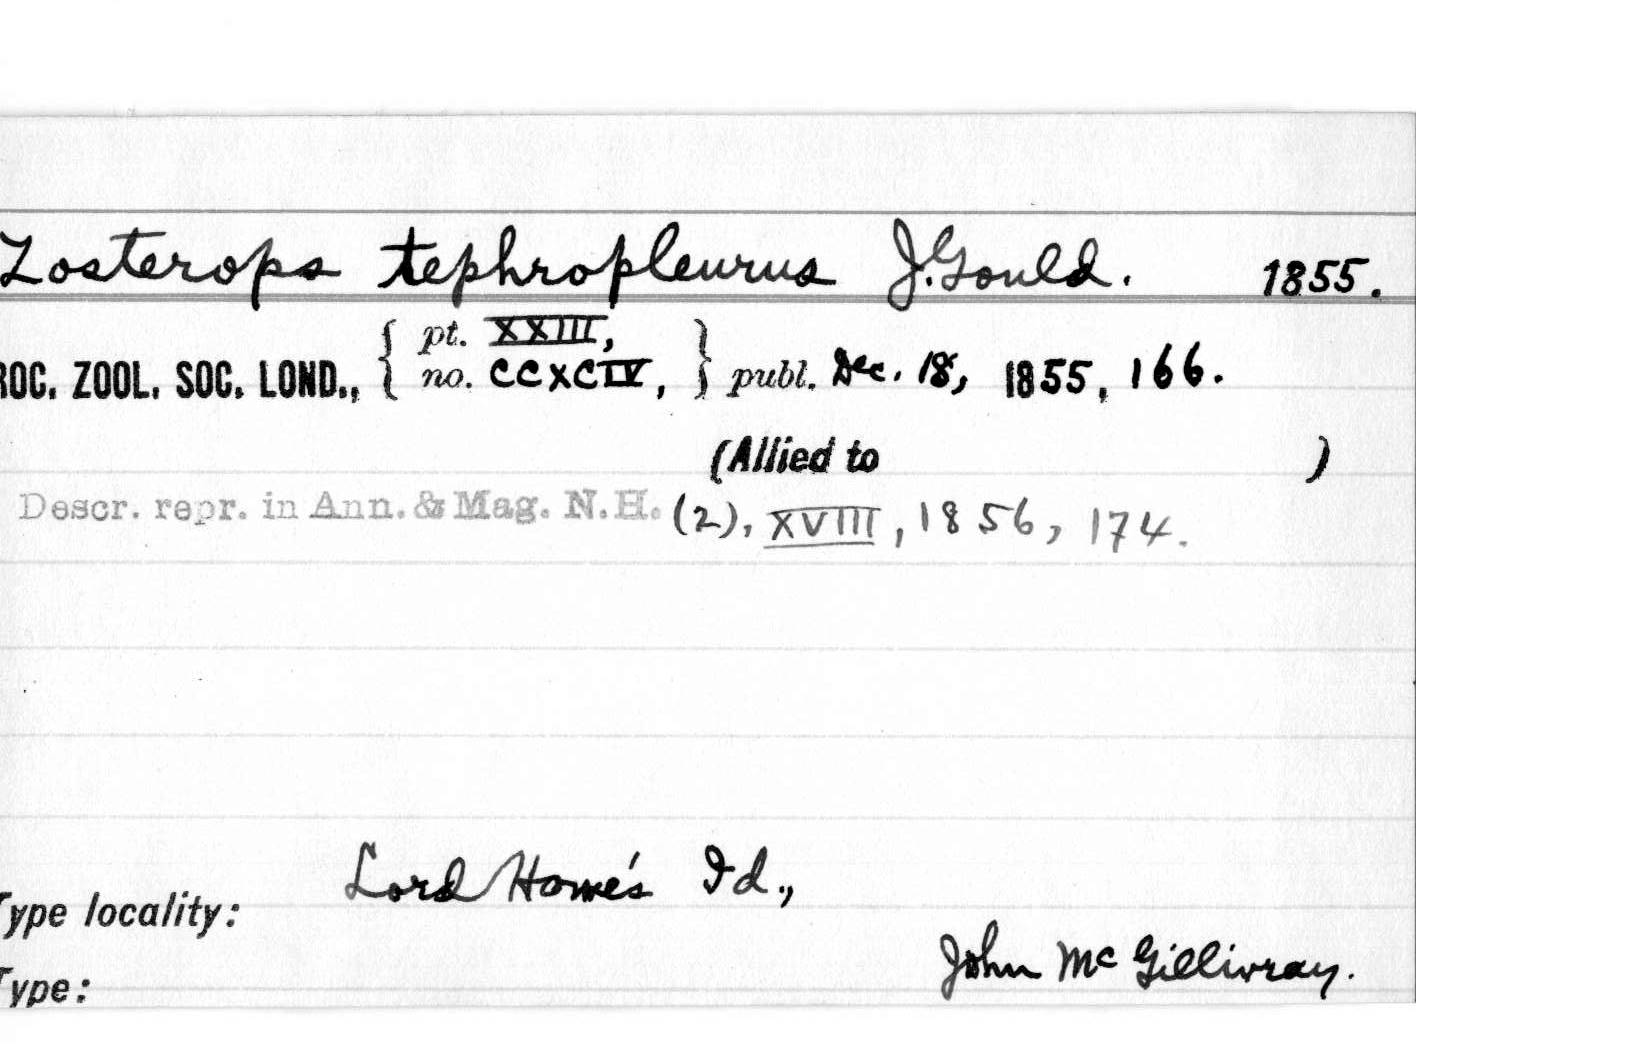 Zosterops tephropleurus J. Gould. 1855.
ROC. ZOOL. SOC. LOND., { pt. XXIII, no. CCXCIV, } publ. Dec. 18, 1855, 166.
(Allied to )
Descr. repr. in Ann. & Mag. N.H. (2), XVIII, 1856, 174.
Lord Howe's Id.,
Type locality:
John McGillivray.
Type: